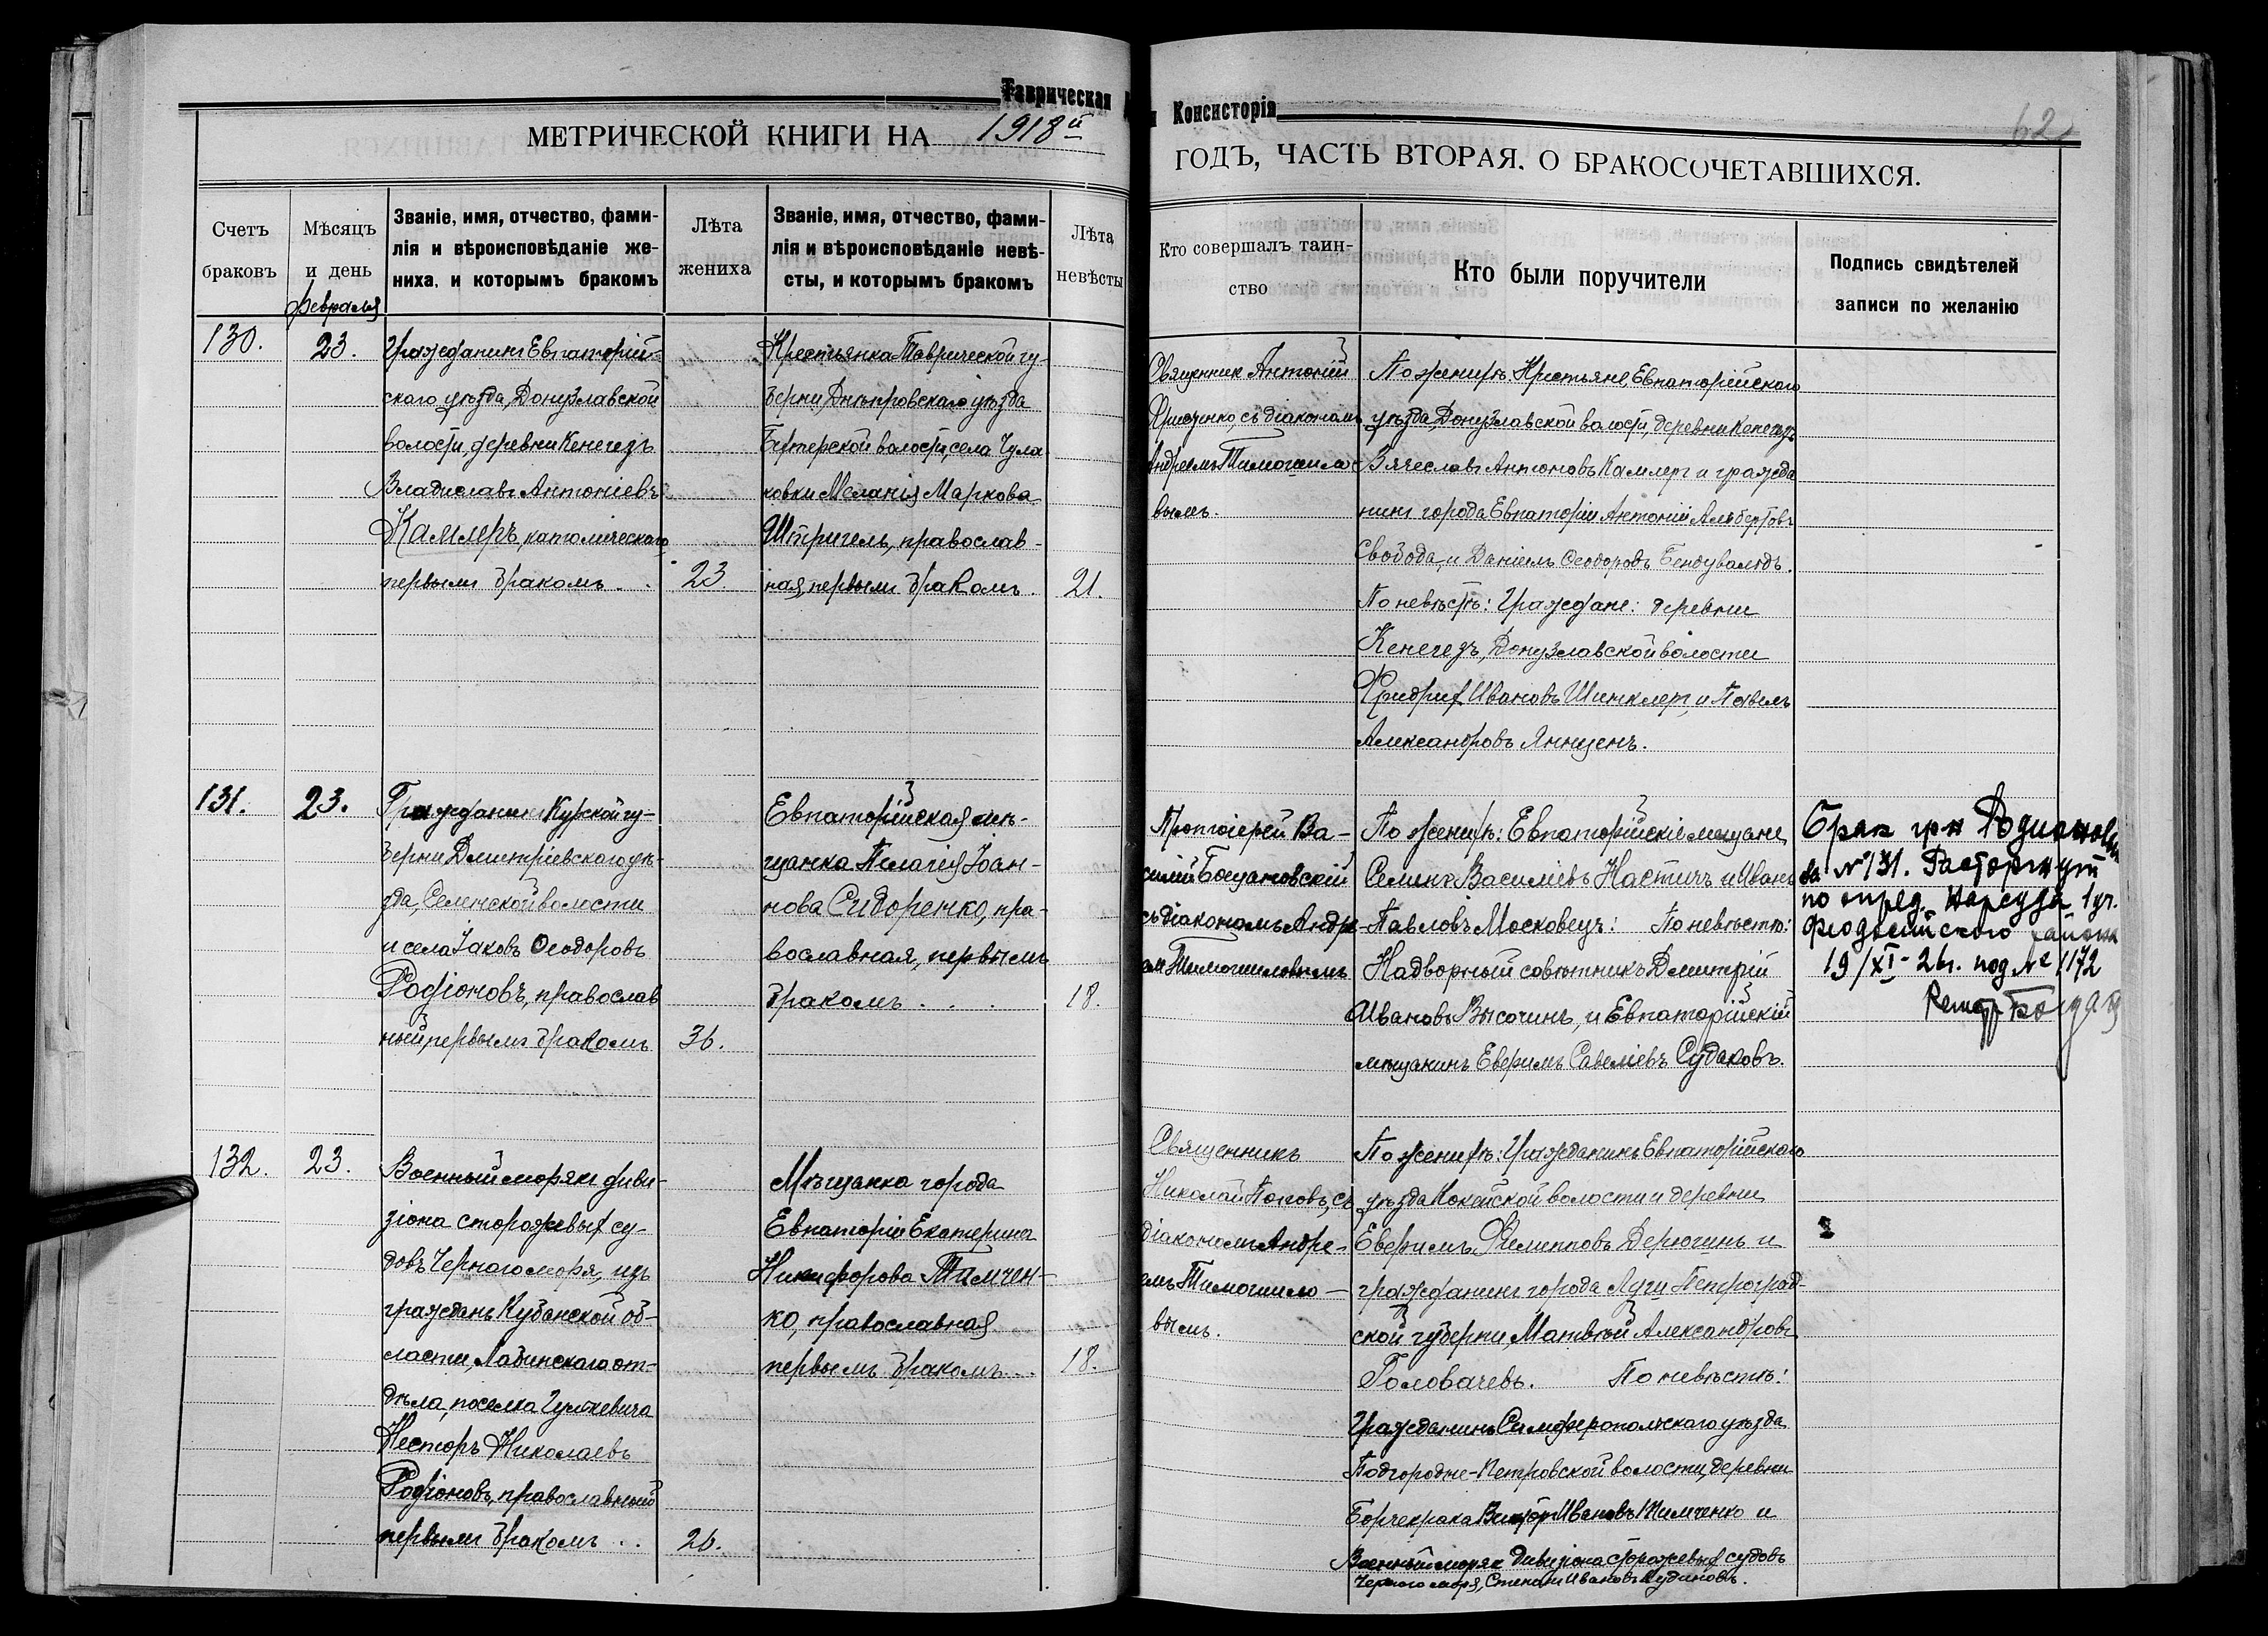 Таврическая
Консисторія
62
МЕТРИЧЕСКОЙ КНИГИ НА 1918й
ГОДЪ, ЧАСТЬ ВТОРАЯ. О БРАКОСОЧЕТАВШИХСЯ.
Счетъ
браковъ
Мѣсяцъ
и день
Званіе, имя, отчество, фами-
лія и вѣроисповѣданіе же-
ниха, и которымъ бракомъ
Лѣта
жениха
Званіе, имя, отчество, фами-
лія и вѣроисповѣданіе невѣ-
сты, и которымъ бракомъ
Лѣта
невѣсты
Кто совершалъ таин-
ство
Кто были поручители
Подпись свидѣтелей
записи по желанію
февраля
130.
23.
Гражданинъ Евпаторій-
скаго уѣзда, Донузлавской
волости, деревни Кенегезъ
Владиславъ Антоніевъ
Каммеръ, католическаго
первымъ бракомъ . .
23.
Крестьянка Таврической гу-
берни, Днѣпровскаго уѣзда
волости, села Чула
ковки Меланія Маркова
Штригель, православ-
ная, первымъ бракомъ.
21.
Священник Антоній
съ діакономъ
Андреемъ Тимошило-
вымъ.
По женихѣ: Крестьяне, Евпаторійскаго
уѣзда, Донузлавской волости, деревни Кенегезъ
Вячеславъ Антоновъ Каммеръ и гражда
нинъ города Евпаторіи Антоній Альбертовъ
Свобода, и Даніилъ Ѳеодоровъ
По невѣстѣ: Граждане: деревни
Кенегезъ, Донузлавской волости
Фридрихъ Ивановъ Шинклеръ, и Павелъ
Александровъ Янцценъ.
131.
23.
Гражданинъ Курской гу-
берни Дмитріевскаго уѣ-
зда, Селенской волости
и села Іаковъ Ѳеодоровъ
Родіоновъ, православ
ный, первымъ бракомъ
36.
Евпаторійская мѣ-
щанка Пелагія Іоан-
нова Сидоренко, пра-
вославная, первымъ
бракомъ . . .
18.
Протоіерей Ва-
силій Богдановскій
съ діакономъ Андре-
емъ Тимошиловымъ
По женихѣ: Евпаторійскіе мещане
Семенъ Василіевъ Настичъ и Иванъ
Павловъ Московецъ: По невѣстѣ:
Надворный совѣтникъ Дмитрій
Ивановъ Высочинъ, и Евпаторійскій
мѣщанинъ Евфимъ Савеліевъ Судаковъ.
Брак гр-н
за № 131. Расторгнут
по опред. Нарсуда 1 уч.
Феодосийского района
19/XI-26г. под № 1172
132.
23.
Военный морякъ диви-
зіона сторожевых су-
довъ Чернаго моря, изъ
гражданъ Кубанской об-
ласти, Лабинскаго от-
дѣла, поселка Гулькевича
Несторъ Николаевъ
Родіоновъ, православный
первымъ бракомъ . .
26.
Мѣщанка города
Евпаторіи Екатерина
Никифорова Тимчен-
ко, православная
первымъ бракомъ . .
18.
Священникъ
Николай Поповъ, съ
діакономъ Андре-
емъ Тимошило-
вымъ.
По женихѣ: Гражданинъ Евпаторійскаго
уѣзда волости и деревни
Евфимъ Филипповъ Дерюгинъ и
гражданинъ города Луги Петроград-
ской губерни, Матвѣй Александровъ
Головачевъ. По невѣстѣ:
Гражданинъ Симферопольскаго уѣзда
Подгородне-Петровской волости, деревни
Викторъ Ивановъ Тимченко и
Военный морякъ дивизіона сторожевых судовъ
Чернаго моря, Степанъ Ивановъ